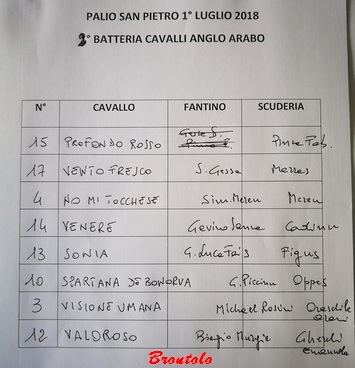 PALIO SAN PIETRO 1° LUGLIO 2018
2° BATTERIA CAVALLI ANGLO ARABO
N° CAVALLO FANTINO SCUDERIA
15 PROFONDO ROSSO Pinna Fab.
17 VENTO FRESCO S. Gessa
4 NO MI TOCCHESE Sim. Mereu Mereu
14 VENERE Gavino Sanna
13 SONIA G. Luca Fais Figus
10 SPARTANA DE BONORVA G. Piccinnu Oppes
3 VISIONE UMANA Michael Rossini
12 VALOROSO Biagio Murgia
Emanuele
Brontolo